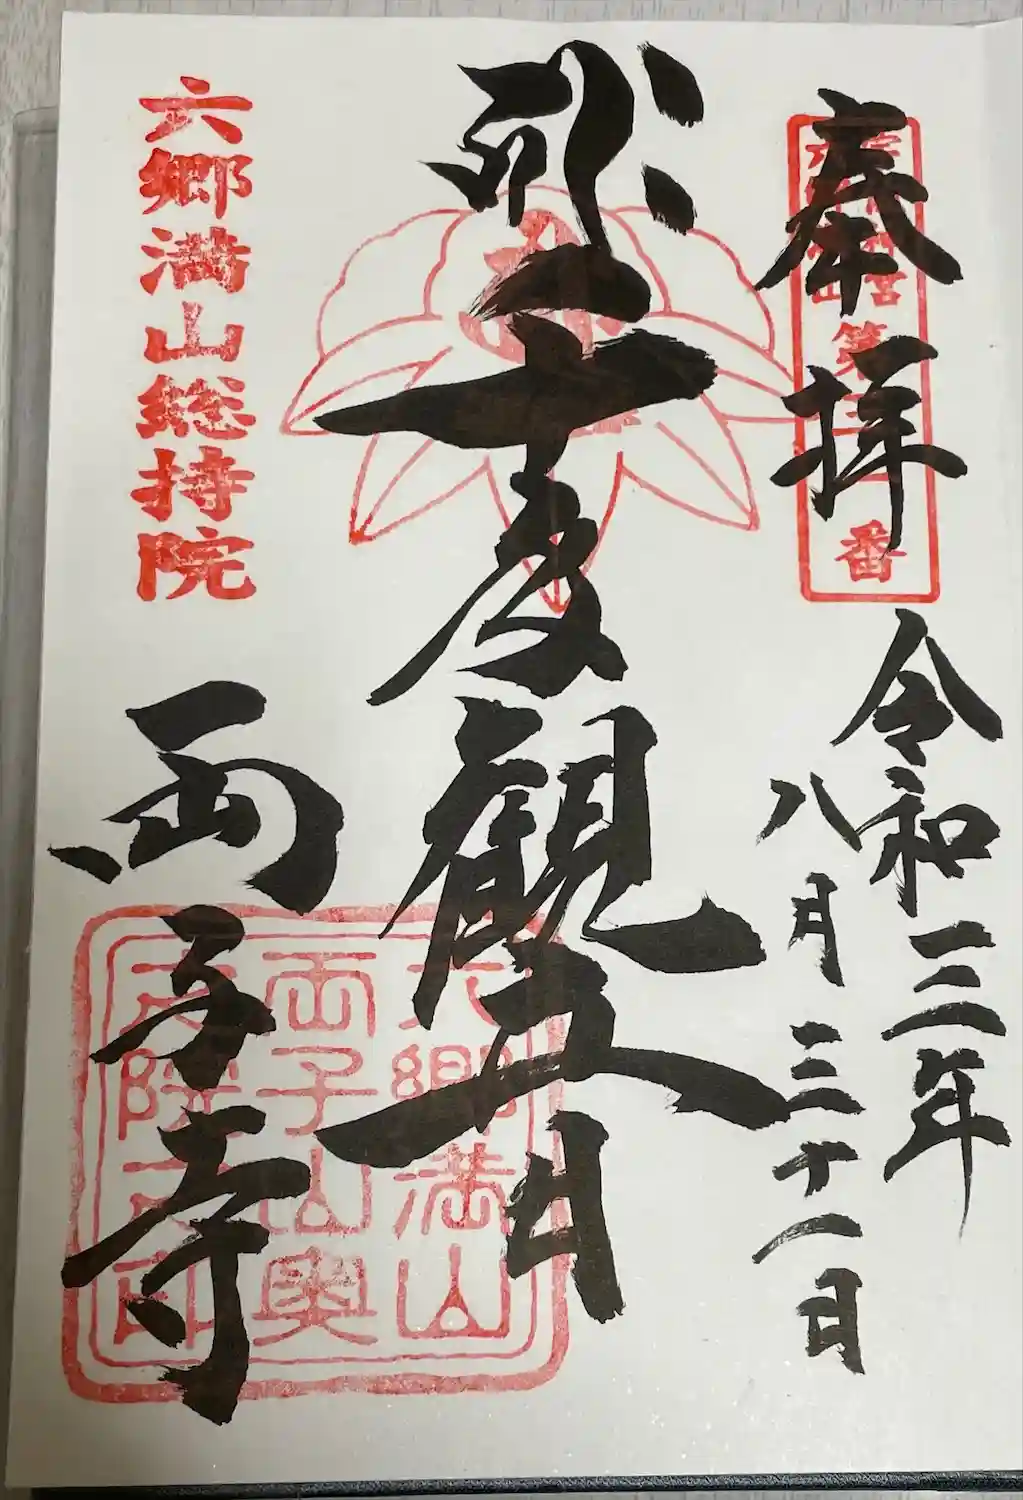 奉拝
第
番
令和三年
八月三十一日
観音
六郷満山総持院
両子寺
六郷満山
両子山奥
之院之印